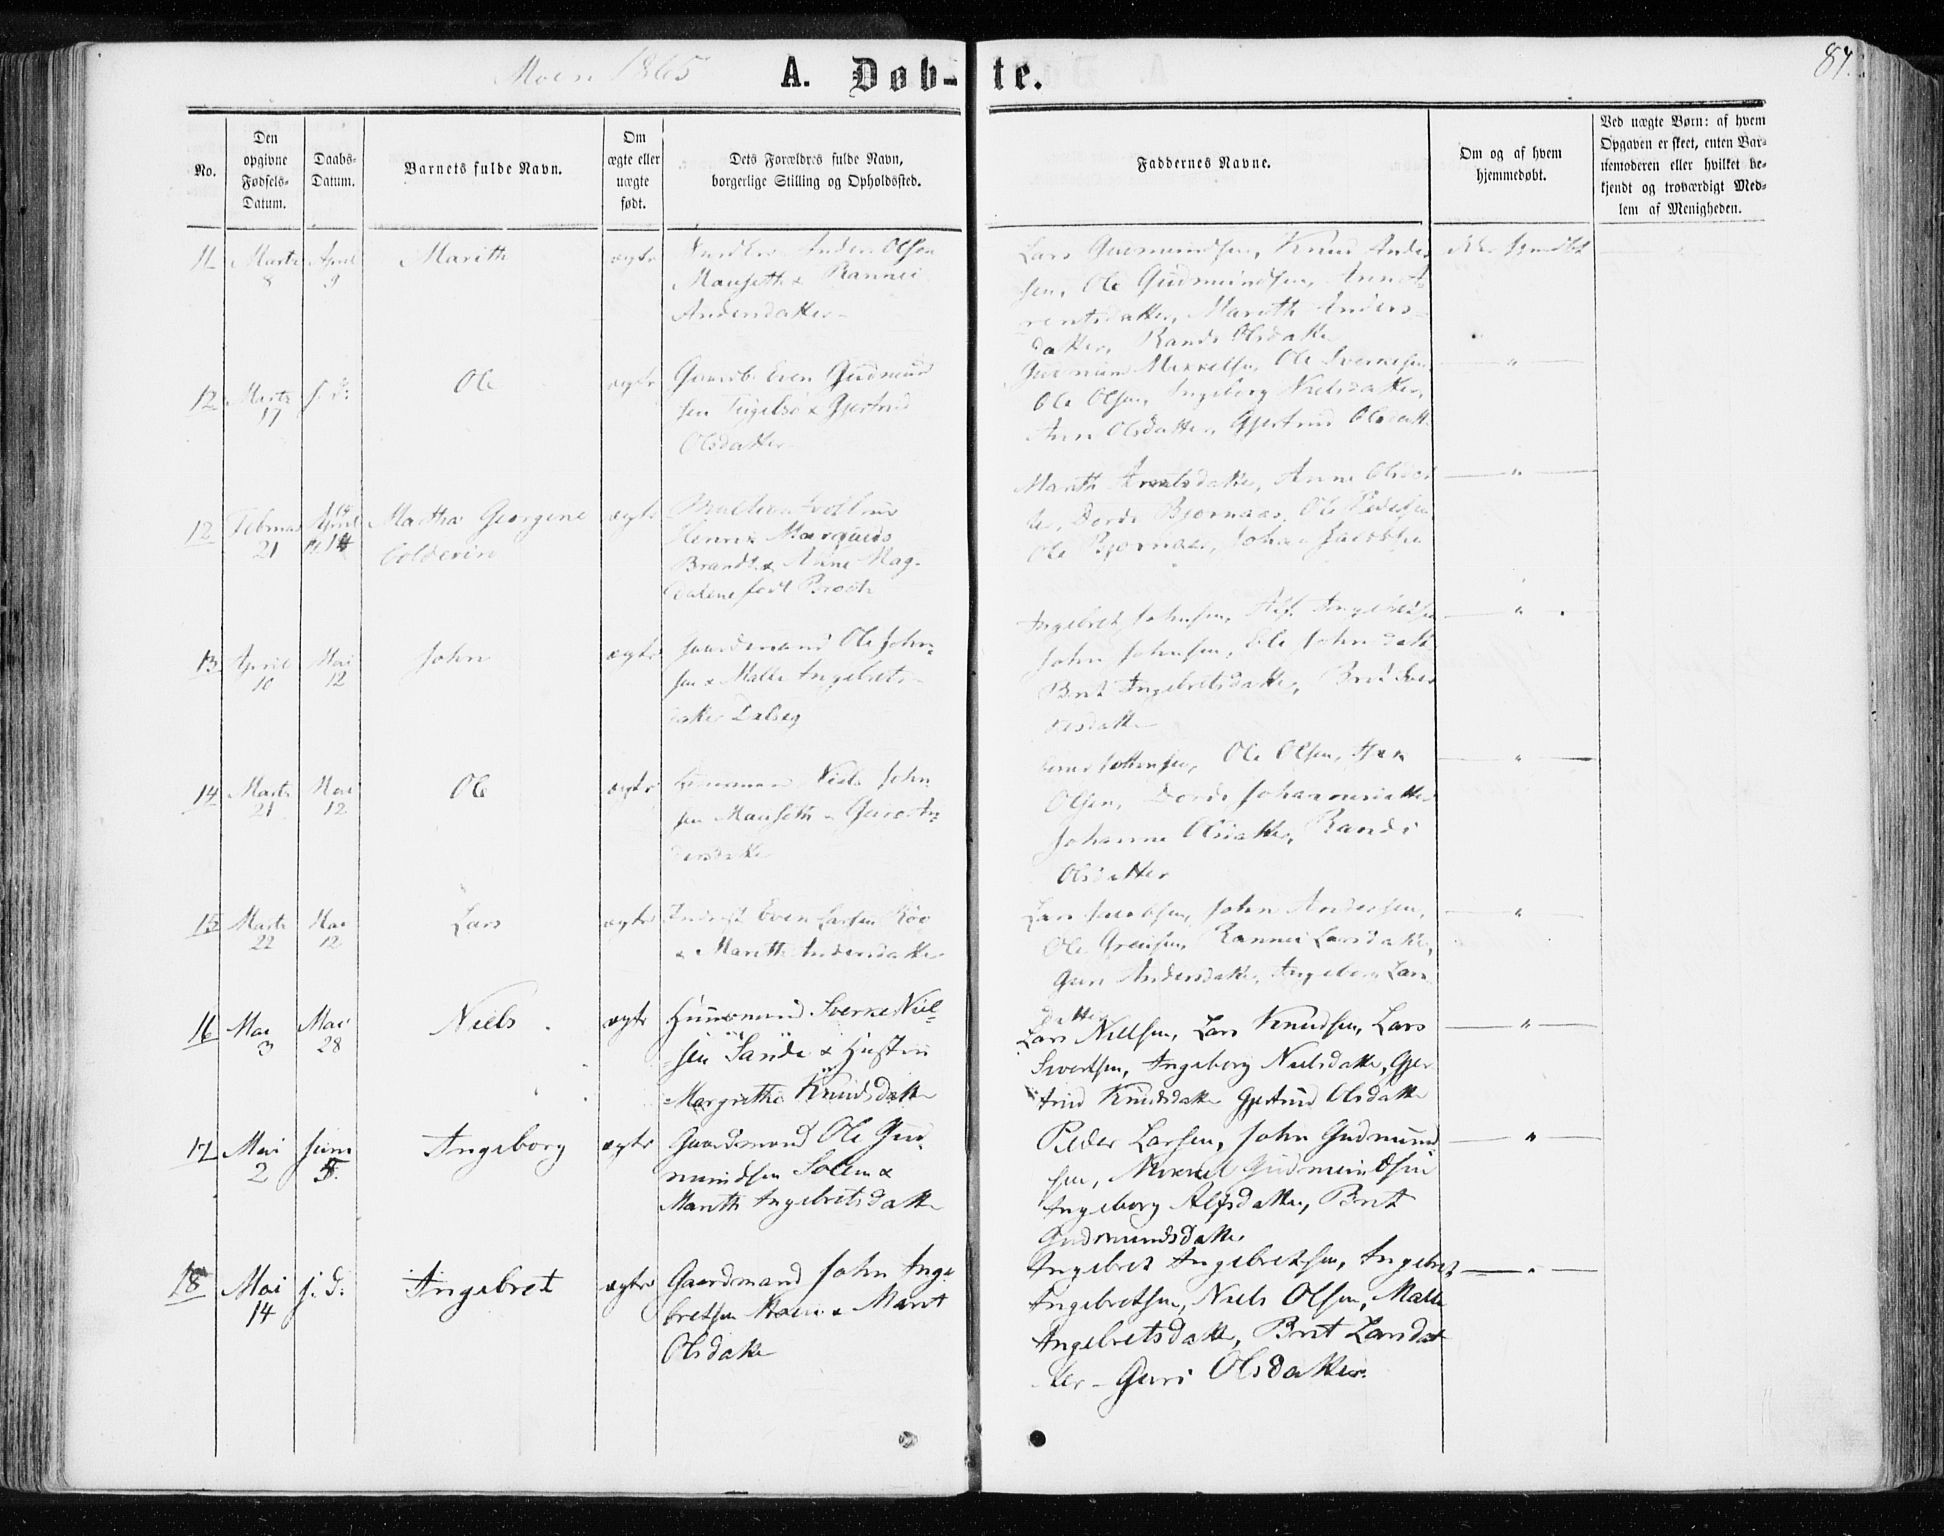 Moen 1865
A. Døb-te.
87.
No.
Den opgivne Fødsels-Datum.
Daabs-Datum.
Barnets fulde Navn.
Om ægte eller uægte født.
Dets Forældres fulde Navn, borgerlige Stilling og Opholdssted.
Faddernes Navne.
Om og af hvem hjemmedøbt.
Ved uægte Børn: af hvem Opgaven er skeet, enten Barnemoderen eller hvilket bekjendt og troværdigt Medlem af Menigheden.
11 Marts 8 April 9 Marith ægte
Anders Olsen
Mauseth & Rannei
Andersdatter
Lars Gudmundsen, Knud Ander
sen, Ole Gudmundsen, Anne A
rentsdatter, Marith Anders
datter, Randi Olsdatter
12 Marts 17 s. d. Ole ægte
Even Gudmund
sen & Gjertrud
Olsdatter
Gudmund Mikkelsen, Ole Sverkesen
Ole Olsen, Ingeborg Nielsdatter,
Ane Olsdatter, Gjertrud Olsdatt
12 Februar 21 April 14 Martha Georgine ægte
Henrik Marquids
Brandt & Anne Mag-
dalene født Broch
Marith Arntsdatter, Anne Olsdat
ter, Dordi Bjørnaas, Ole Pedersen
Ole Bjørnaas, Johan Jacobsen
13 April 10 Mai 12 John ægte
Gaardmand Ole John-
sen & Malli Ingebrets-
datter Dalseg
Ingebret Johnsen, Alf Ingebretsen
John Johnsen, Ole Johnsdatt
Brit Ingebretsdatter, Brit Sver
kesdatter
14 Marts 21 Mai 12 Ole ægte
Huusmand Niels John
sen Mauseth & Guro An-
dersdatter
Johnsen, Ole Olsen,
Olsen, Dordi Johannesdatter
Johanne Olsdatter, Randi
Olsdatter
15 Marts 22 Mai 12 Lars ægte
Inderst Even Larsen Røv
& Marith Andersdatter
Lars Jacobsen, John Andersen,
Ole Rannei Larsdatter,
Guri Andersdatter, Ingeborg Lars
datter
16 Mai 3 Mai 28 Niels ægte
Huusmand Sverke Niel-
sen Sande & Hustru
Margrethe Knudsdatter
Lars Nielsen, Lars Knudsen, Lars
Sivertsen, Ingeborg Nielsdatter, Gjer
trud Knudsdatter Gjertrud Olsdatter
17 Mai 2 Juni 5. Ingeborg ægte
Gaardmand Ole Gud
mundsen Solem &
Marith Ingebretsdatter
Peder Larsen, John Gudmund
sen, Mikkel Gudmundsen
Ingeborg Alfsdatter, Brit
Gudmundsdatter
18 Mai 14 s. d. Ingebret ægte
Gaardmand John Inge
bretsen Moen & Marit
Olsdatter
Ingebret Ingebretsen, Ingebret
Ingebretsen, Niels Olsen, Malli
Ingebretsdatter, Brit Larsdat
ter - Guri Olsdatter.